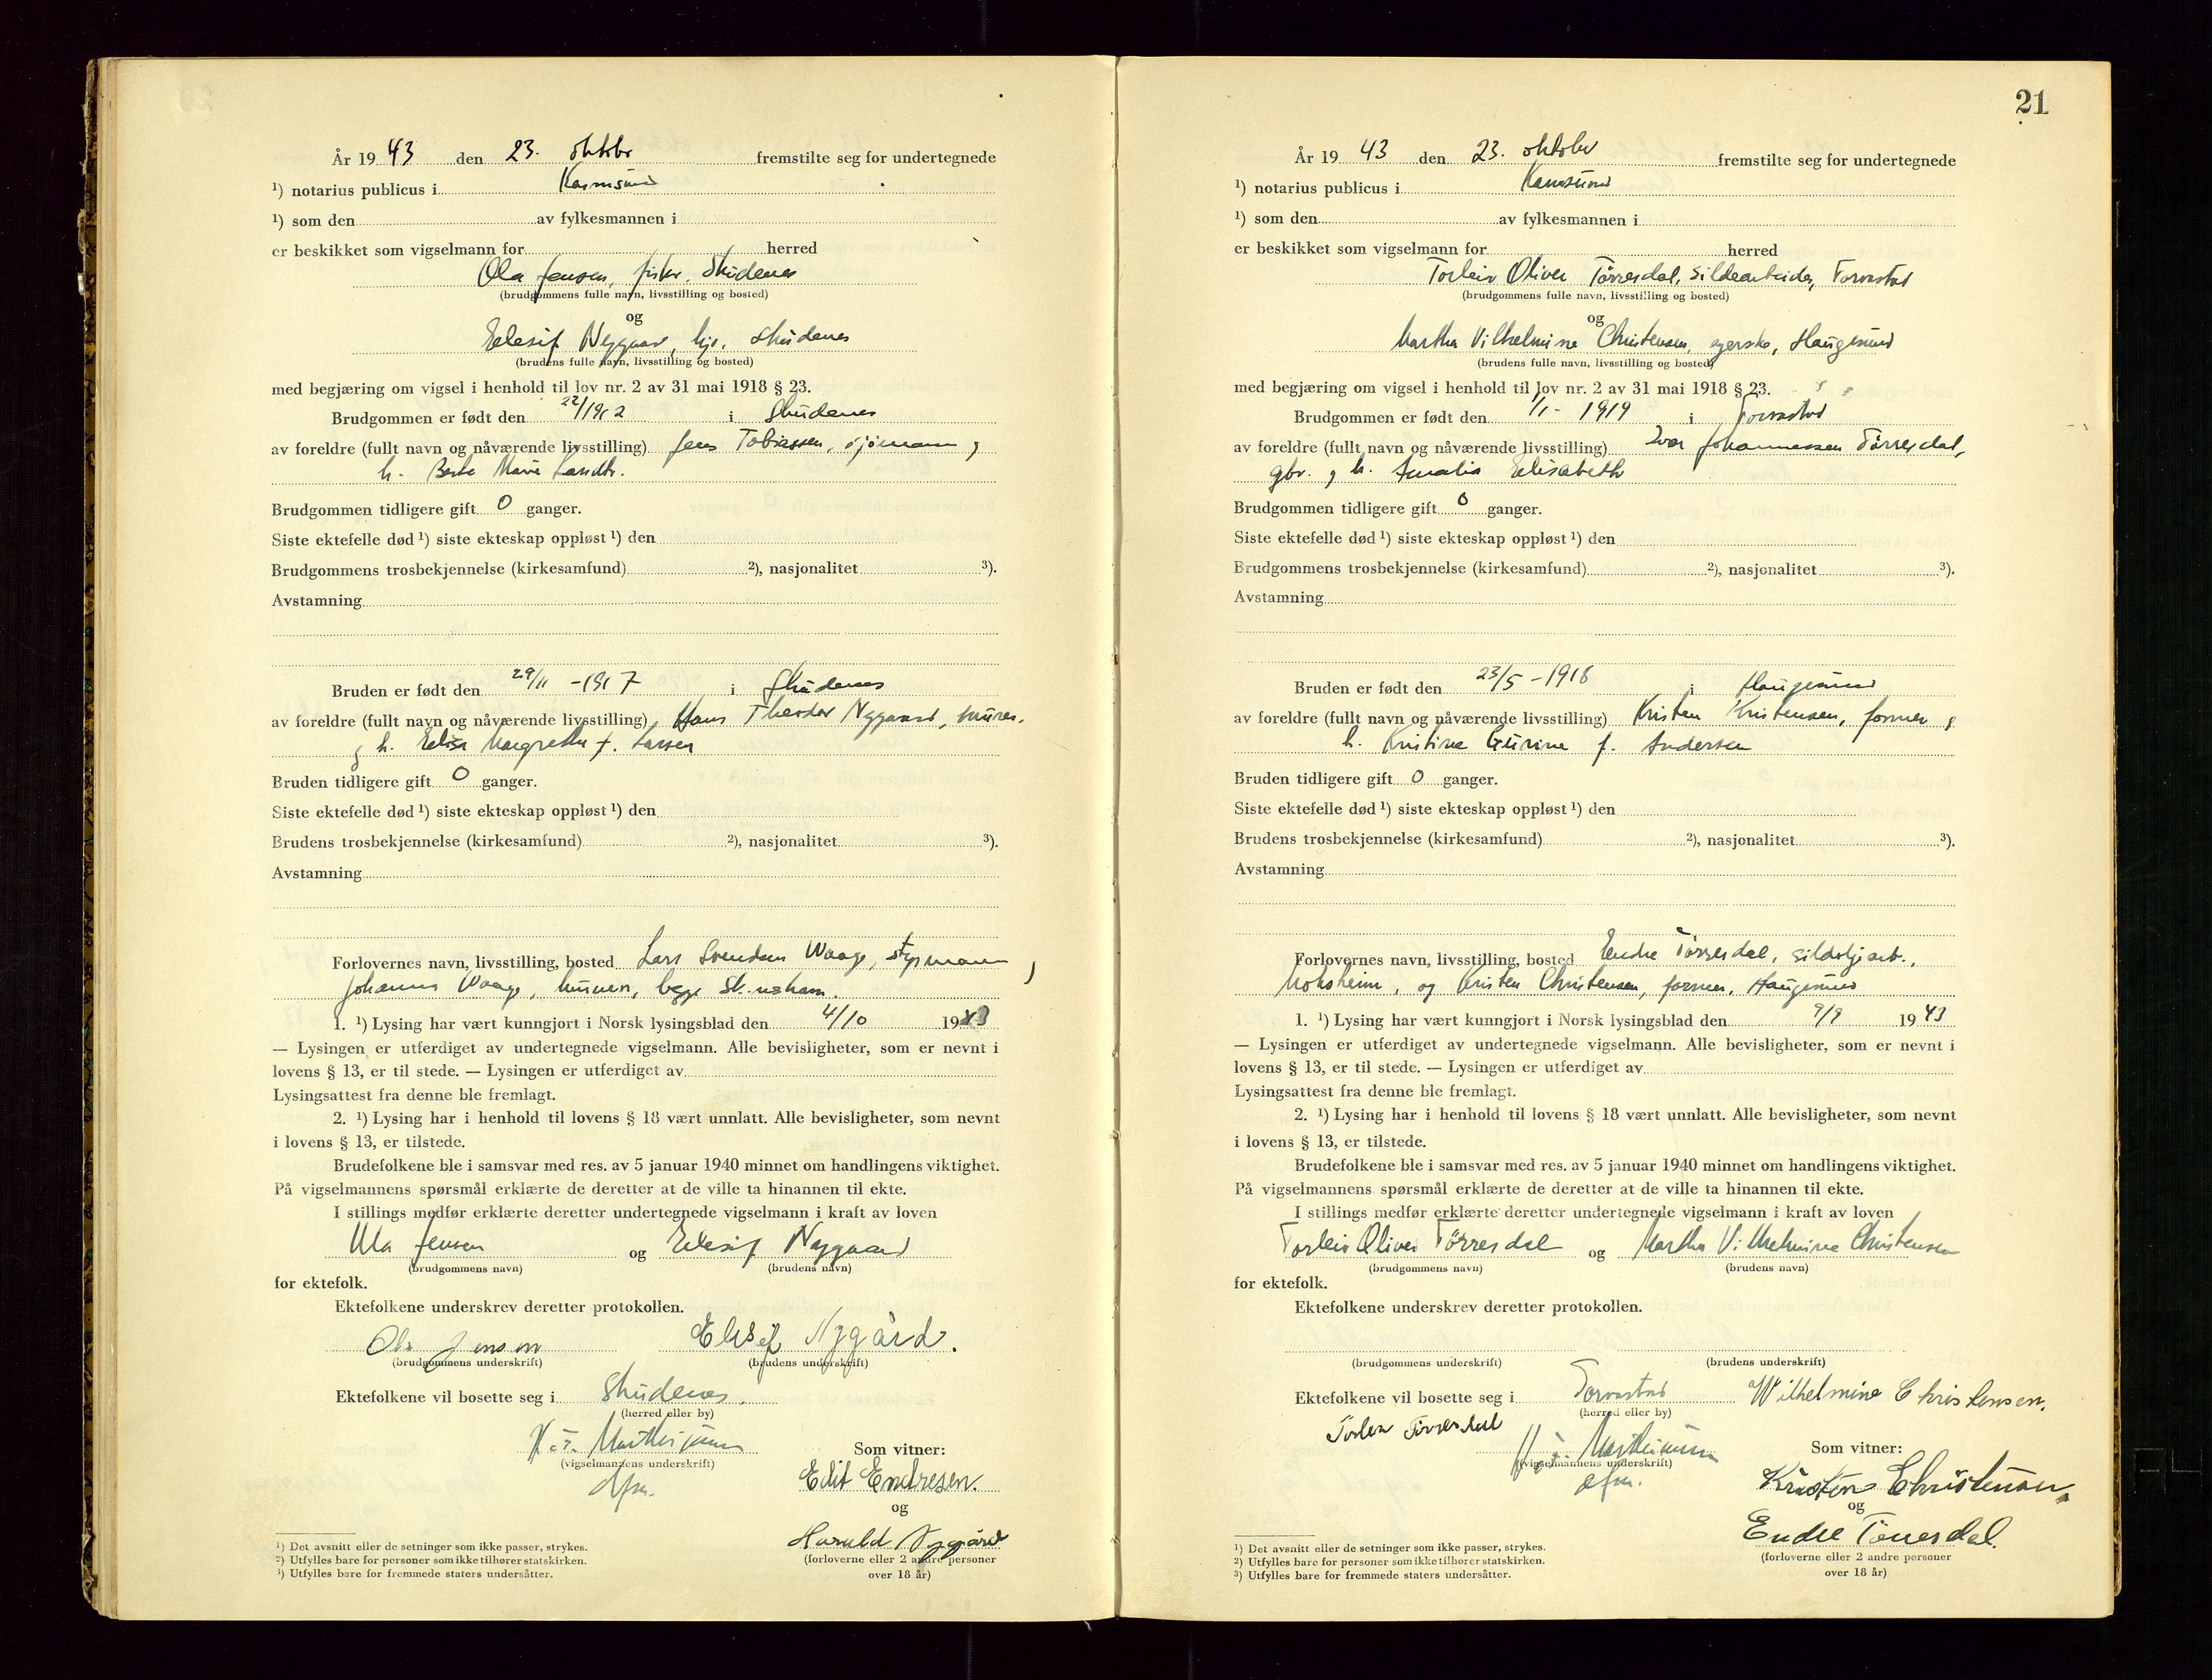 År 19 43 den 23. oktobr fremstilte seg for undertegnede
¹) notarius publicus i Karmsund
¹) som den av fylkesmannen i
er beskikket som vigselmann for herred
Ola Jensen, fisker, Skudenes
(brudgommens fulle navn, livsstilling og bosted)
og
Eelesif Nygaard, hjv. Skudenes
(brudens fulle navn, livsstilling og bosted)
med begjæring om vigsel i henhold til lov nr. 2 av 31 mai 1918 § 23.
Brudgommen er født den i Skudenes
av foreldre (fullt navn og nåværende livsstilling) Jens Tobiassen, sjømann og
h. Berte Marie
Brudgommen tidligere gift 0 ganger.
Siste ektefelle død ¹) siste ekteskap oppløst ¹) den
Brudgommens trosbekjennelse (kirkesamfund) ²), nasjonalitet ³).
Avstamning
Bruden er født den 29/11 -1917 i Skudenes
av foreldre (fullt navn og nåværende livsstilling) Hans Theodor Nygaard, murer,
og h. Elise Margrethe f. Larsen
Bruden tidligere gift 0 ganger.
Siste ektefelle død ¹) siste ekteskap oppløst ¹) den
Brudens trosbekjennelse (kirkesamfund) ²), nasjonalitet ³).
Avstamning
Forlovernes navn, livsstilling, bosted Lars Svendsen Waage, styrmann,
Johannes Waage, begge Sk.neshavn.
1. ¹) Lysing har vært kunngjort i Norsk lysingsblad den 4/10 1943
— Lysingen er utferdiget av undertegnede vigselmann. Alle bevisligheter, som er nevnt i
lovens § 13, er til stede. — Lysingen er utferdiget av
Lysingsattest fra denne ble fremlagt.
2. ¹) Lysing har i henhold til lovens § 18 vært unnlatt. Alle bevisligheter, som nevnt
i lovens § 13, er tilstede.
Brudefolkene ble i samsvar med res. av 5 januar 1940 minnet om handlingens viktighet.
På vigselmannens spørsmål erklærte de deretter at de ville ta hinannen til ekte.
I stillings medfør erklærte deretter undertegnede vigselmann i kraft av loven
Ola Jensen og Eelesif Nygaard
(brudgommens navn) (brudens navn)
for ektefolk.
Ektefolkene underskrev deretter protokollen.
Ola Jensen Elisef Nygård.
(brudgommens underskrift) (brudens underskrift)
Ektefolkene vil bosette seg i Skudenes.
(herred eller by)
Som vitner:
(vigselmannens underskrift)
Edit Endresen.
og
Harald Nygård
(forloverne eller 2 andre personer
over 18 år)
¹) Det avsnitt eller de setninger som ikke passer, strykes.
²) Utfylles bare for personer som ikke tilhører statskirken.
³) Utfylles bare for fremmede staters undersåtter.
21
År 19 43 den 23. oktober fremstilte seg for undertegnede
¹) notarius publicus i Karmsund
¹) som den av fylkesmannen i
er beskikket som vigselmann for herred
Torleiv Oliver Tørresdal, sildearbeider, Torvastad
(brudgommens fulle navn, livsstilling og bosted)
og
Martha Vilhelmine Christensen, syerske, Haugesund
(brudens fulle navn, livsstilling og bosted)
med begjæring om vigsel i henhold til lov nr. 2 av 31 mai 1918 § 23.
Brudgommen er født den 1/1- 1919 i Torvastad
av foreldre (fullt navn og nåværende livsstilling) Ivar Johannessen Tørresdal,
gbr. og h. Amalia Elisabeth
Brudgommen tidligere gift 0 ganger.
Siste ektefelle død ¹) siste ekteskap oppløst ¹) den
Brudgommens trosbekjennelse (kirkesamfund) ²), nasjonalitet ³).
Avstamning
Bruden er født den 23/5 -1918 i Haugesund
av foreldre (fullt navn og nåværende livsstilling) Kristen Kristensen, former og
h. Kristine Gurine f. Andersen
Bruden tidligere gift 0 ganger.
Siste ektefelle død ¹) siste ekteskap oppløst ¹) den
Brudens trosbekjennelse (kirkesamfund) ²), nasjonalitet ³).
Avstamning
Forlovernes navn, livsstilling, bosted Endre Tørresdal, sildoljearb.,
Moksheim, og Kristen Christensen, former, Haugesund
1. ¹) Lysing har vært kunngjort i Norsk lysingsblad den 9/9 19 43
— Lysingen er utferdiget av undertegnede vigselmann. Alle bevisligheter, som er nevnt i
lovens § 13, er til stede. — Lysingen er utferdiget av
Lysingsattest fra denne ble fremlagt.
2. ¹) Lysing har i henhold til lovens § 18 vært unnlatt. Alle bevisligheter, som nevnt
i lovens § 13, er tilstede.
Brudefolkene ble i samsvar med res. av 5 januar 1940 minnet om handlingens viktighet.
På vigselmannens spørsmål erklærte de deretter at de ville ta hinannen til ekte.
I stillings medfør erklærte deretter undertegnede vigselmann i kraft av loven
Torleiv Oliver Tørresdal og Martha Vilhelmine Christensen
(brudgommens navn) (brudens navn)
for ektefolk.
Ektefolkene underskrev deretter protokollen.
(brudgommens underskrift) (brudens underskrift)
Ektefolkene vil bosette seg i Torvastad Wilhelmine Christensen.
(herred eller by)
Torleiv Tørresdal
Som vitner:
(vigselmannens underskrift)
Kristen Christensen
og
Endre Tørresdal.
(forloverne eller 2 andre personer
over 18 år)
¹) Det avsnitt eller de setninger som ikke passer, strykes.
²) Utfylles bare for personer som ikke tilhører statskirken.
³) Utfylles bare for fremmede staters undersåtter.